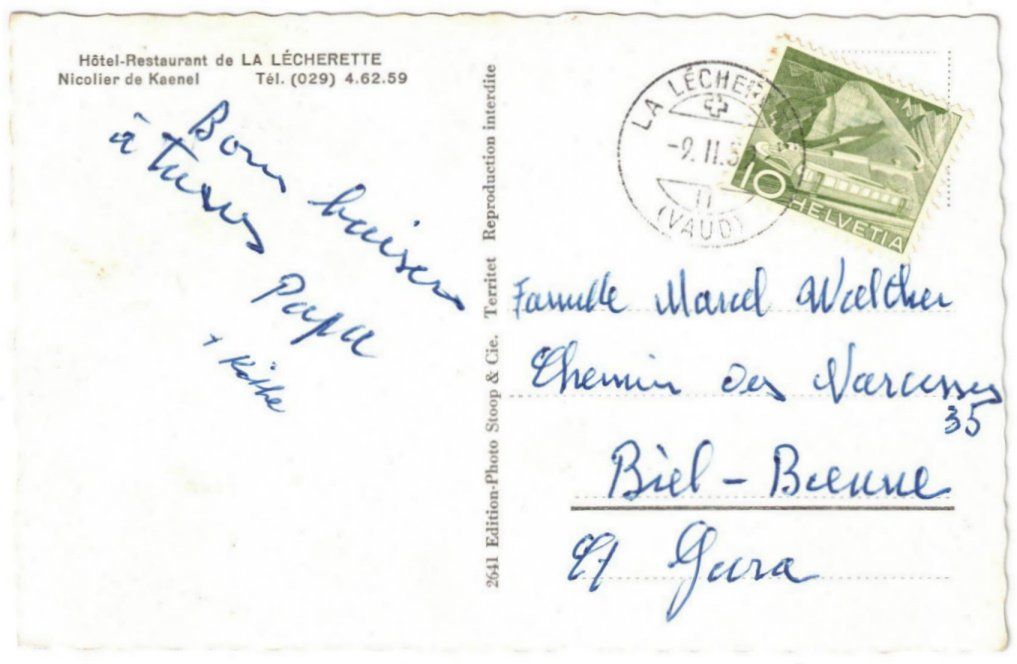 Hôtel-Restaurant de LA LÉCHERETTE
Nicolier de Kaenel Tél. (029) 4.62.59
Bons baisers
à tu
Papa
+ Käthe
2641 Edition-Photo Stoop & Cie. Territet Reproduction interdite
LA LÉCHER
-9.II.5
(VAUD)
10
HELVETIA
Famille Marcel Walther
Chemin des Narcisses
35
Biel - Bienne